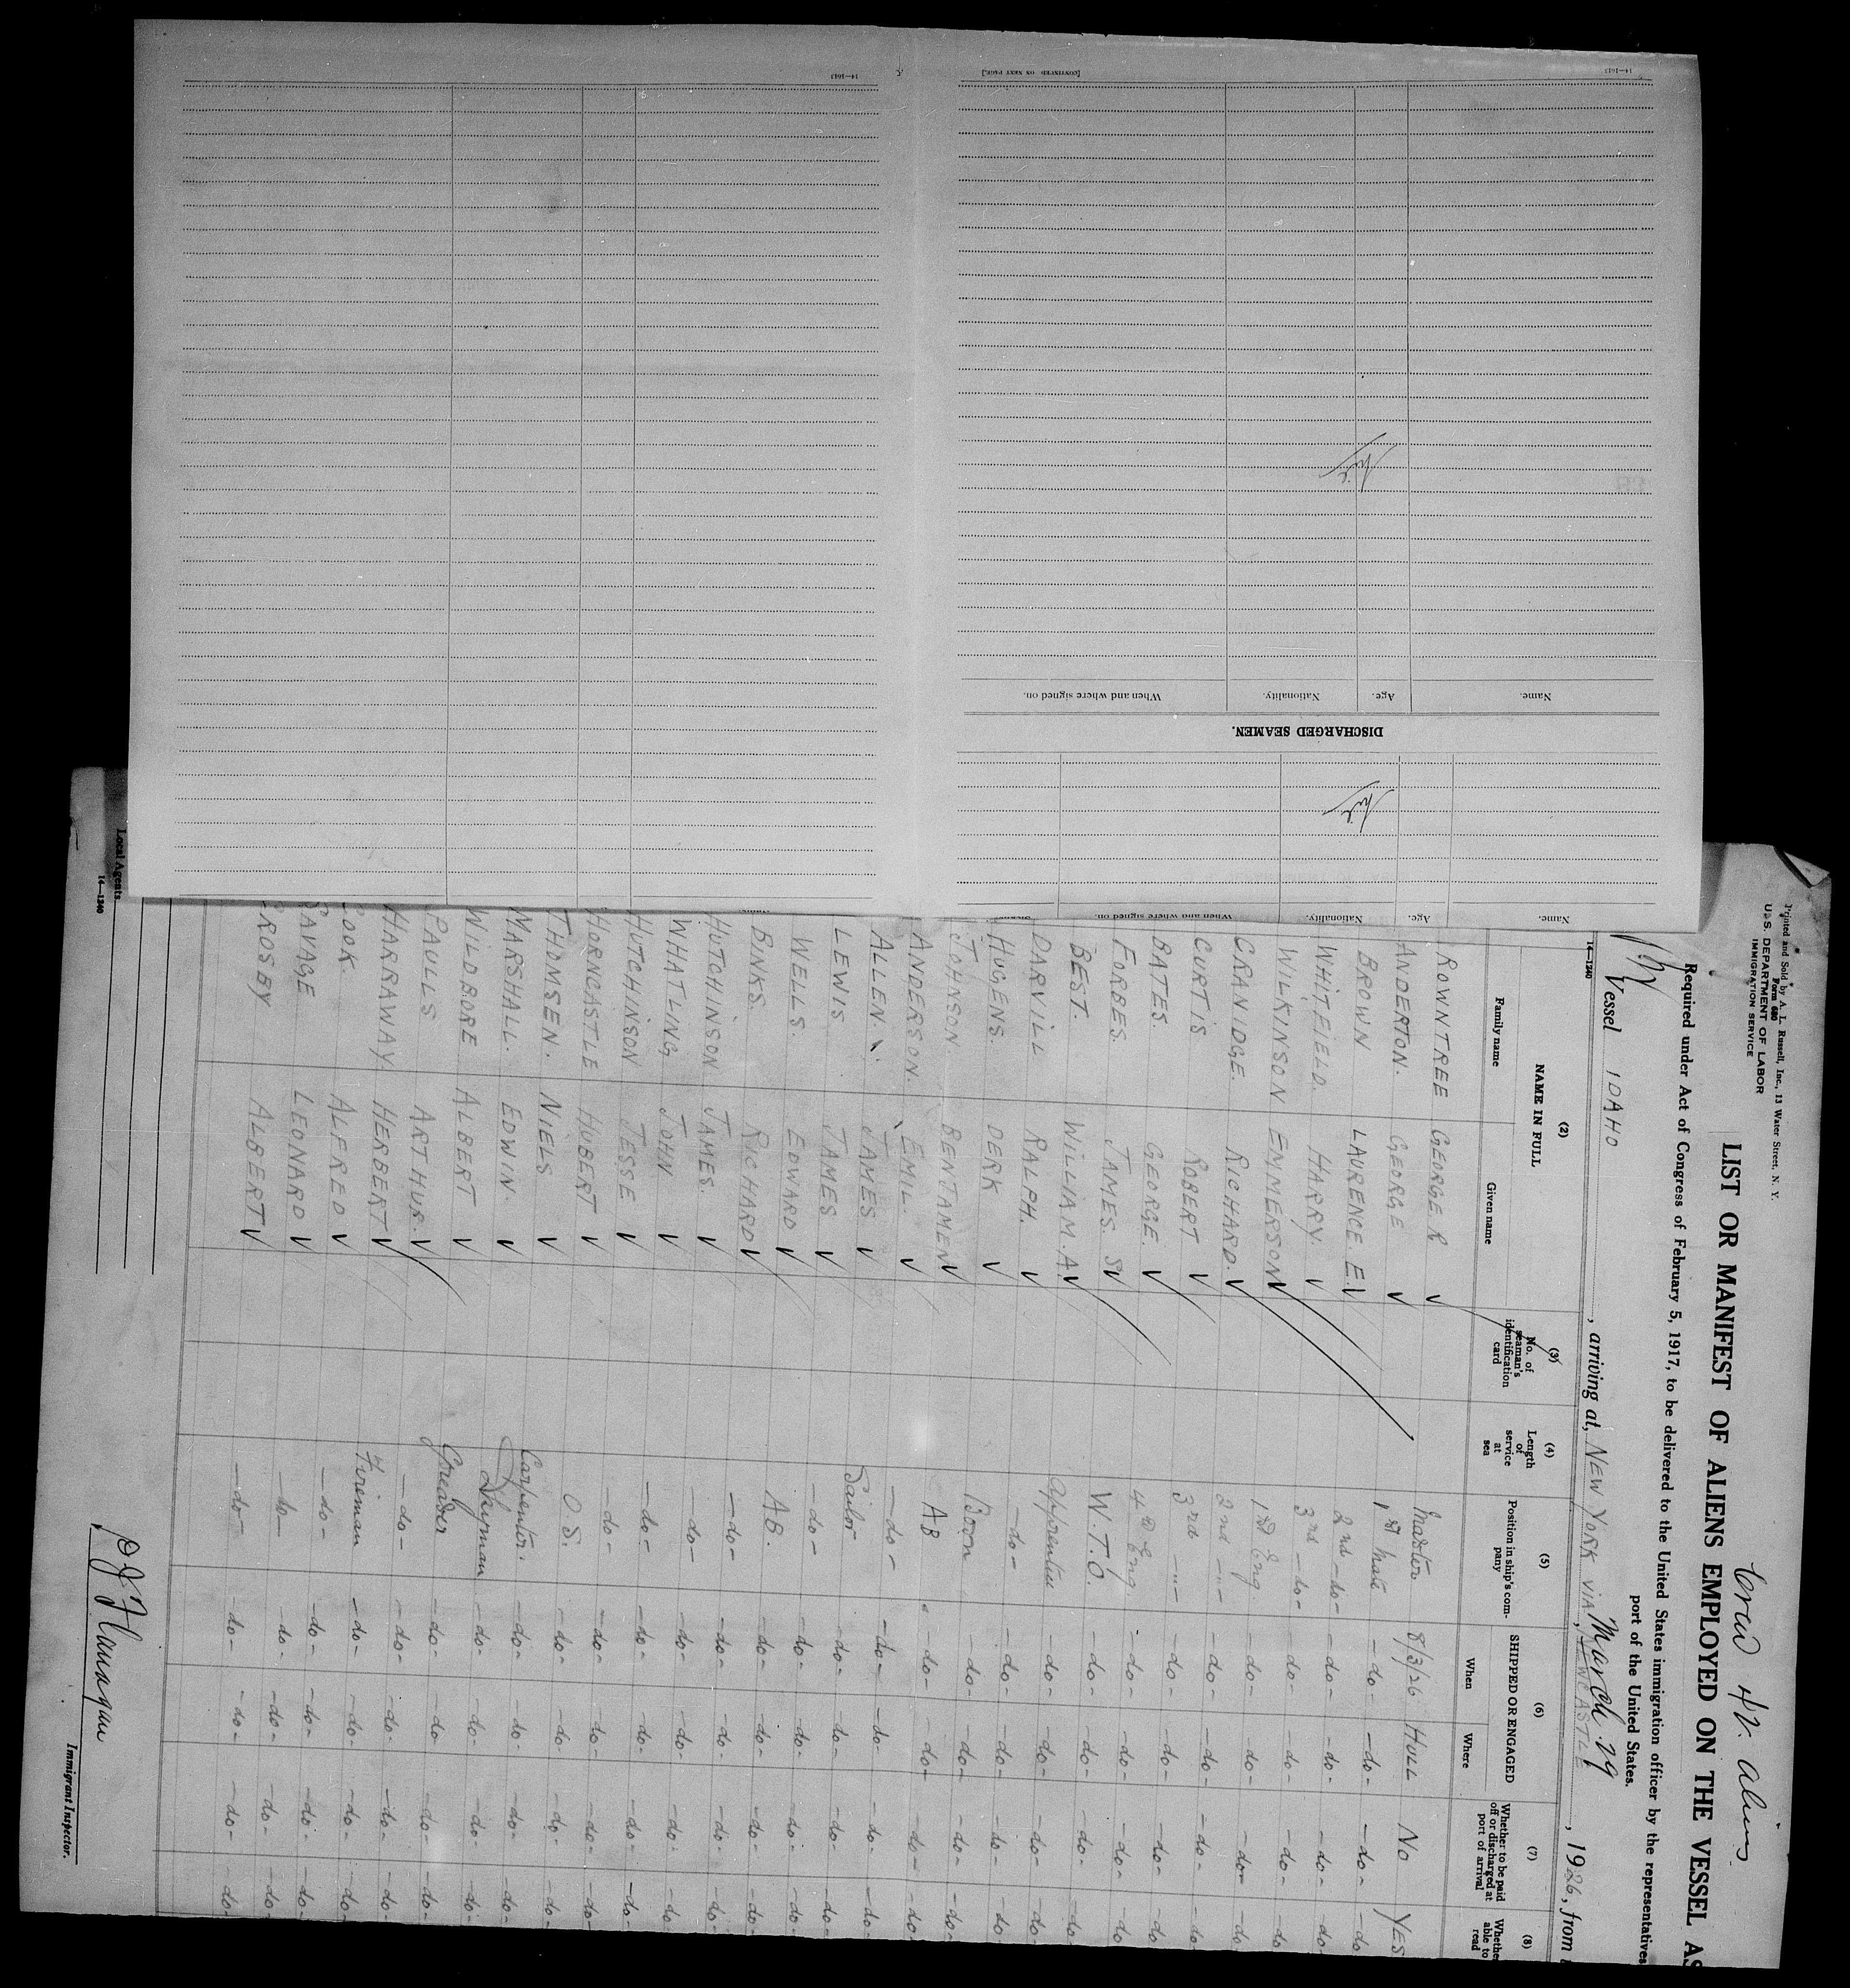 14—1643
[CONTINUED ON NEXT PAGE.]
14—1643
Nil
Name. Age. Nationality. When and where signed on.
DISCHARGED SEAMEN.
Nil
Name. Age. Nationality. When and where signed on.
Printed and Sold by A. L. Russell, Inc., 13 Water Street, N. Y.
Form 680
U. S. DEPARTMENT OF LABOR
IMMIGRATION SERVICE
LIST OR MANIFEST OF ALIENS EMPLOYED ON THE VESSEL AS
Required under Act of Congress of February 5, 1917, to be delivered to the United States immigration officer by the representatives
port of the United States.
Vessel IDAHO, arriving at, NEW YORK VIA NEWCASTLE March 29, 1926, from
14—1240
(2) NAME IN FULL
Family name Given name
(3) No. of seaman's identification card
(4) Length of service at sea
(5) Position in ship's company
(6) SHIPPED OR ENGAGED
When Where
(7) Whether to be paid off or discharged at port of arrival
(8) Whether able to read
ROWNTREE GEORGE R ✓ Master 8/3/26 HULL NO YES
ANDERTON. GEORGE ✓ 1st Mate -do- -do- -do- -do-
BROWN LAURENCE. E. ✓ 2nd -do- -do- -do- -do- -do-
WHITFIELD. HARRY. ✓ 3rd -do- -do- -do- -do- -do-
WILKINSON EMMERSON ✓ 1st Eng -do- -do- -do- -do-
GRANIDGE. RICHARD. ✓ 2nd -"- -do- -do- -do- -do-
CURTIS ROBERT ✓ 3rd -"- -do- -do- -do- -do-
BATES. GEORGE. ✓ 4th Eng. -do- -do- -do- -do-
FORBES. JAMES. S ✓ W.T.O. -do- -do- -do- -do-
BEST. WILLIAM. A. ✓ Apprentice -do- -do- -do- -do-
DARVILL RALPH. ✓ -do- -do- -do- -do- -do-
HUGENS. DERK ✓ Bosn -do- -do- -do- -do-
JOHNSON. BENJAMEN ✓ AB -do- -do- -do- -do-
ANDERSON. EMIL. ✓ -do- -do- -do- -do- -do-
ALLEN. JAMES ✓ Sailor -do- -do- -do- -do-
LEWIS JAMES ✓ -do- -do- -do- -do- -do-
WELLS. EDWARD ✓ AB. -do- -do- -do- -do-
BINKS. RICHARD ✓ -do- -do- -do- -do- -do-
HUTCHINSON. JAMES. ✓ -do- -do- -do- -do- -do-
WHATLING JOHN ✓ -do- -do- -do- -do- -do-
HUTCHINSON JESSE ✓ -do- -do- -do- -do- -do-
HORNCASTLE HUBERT ✓ O.S. -do- -do- -do- -do-
THOMSEN. NIELS ✓ Carpenter. -do- -do- -do- -do-
MARSHALL. EDWIN. ✓ -do- -do- -do- -do-
WILDBORE ALBERT ✓ Greaser -do- -do- -do- -do-
PAULLS ARTHUR. ✓ -do- -do- -do- -do- -do-
HARRAWAY. HERBERT ✓ Fireman -do- -do- -do- -do-
COOK. ALFRED ✓ -do- -do- -do- -do- -do-
SAVAGE LEONARD ✓ -do- -do- -do- -do- -do-
CROSBY ALBERT ✓ -do- -do- -do- -do- -do-
Local Agents
14—1240
Immigrant Inspector.